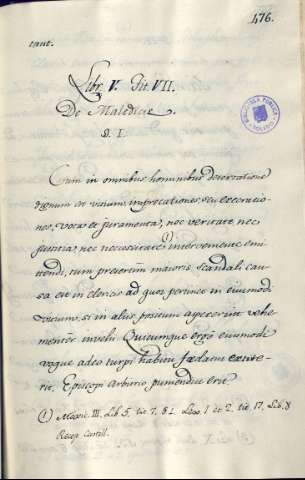 476.
tant.
Libr. V. Tit. VII.
De Maledicis.
§. I.
Cum in omnibus hominibus detestatione
dignum sit vitium imprecationes, seu execratio-
nes, vota et juramenta, nec veritate, nec
justitia, nec necessitate interveniente emi
ttendi, tum præterim maioris scandali cau-
sa est in clericis ad quos pertinet in eiusmodi
vitium, si in alios positum agere vehe-
menter invehi. Quicumque ergo eiusmodi
usque adeo turpi habitu fœdatus extite-
rit, Episcopi arbitrio puniendus erit
(1) Mexic. III. Lib. 5. tit. 7. § 1. Leg. 1 et 2. tit. 17. Lib. 8
Recop. Castill.
BIBLIOTECA PUBLICA
TOLEDO